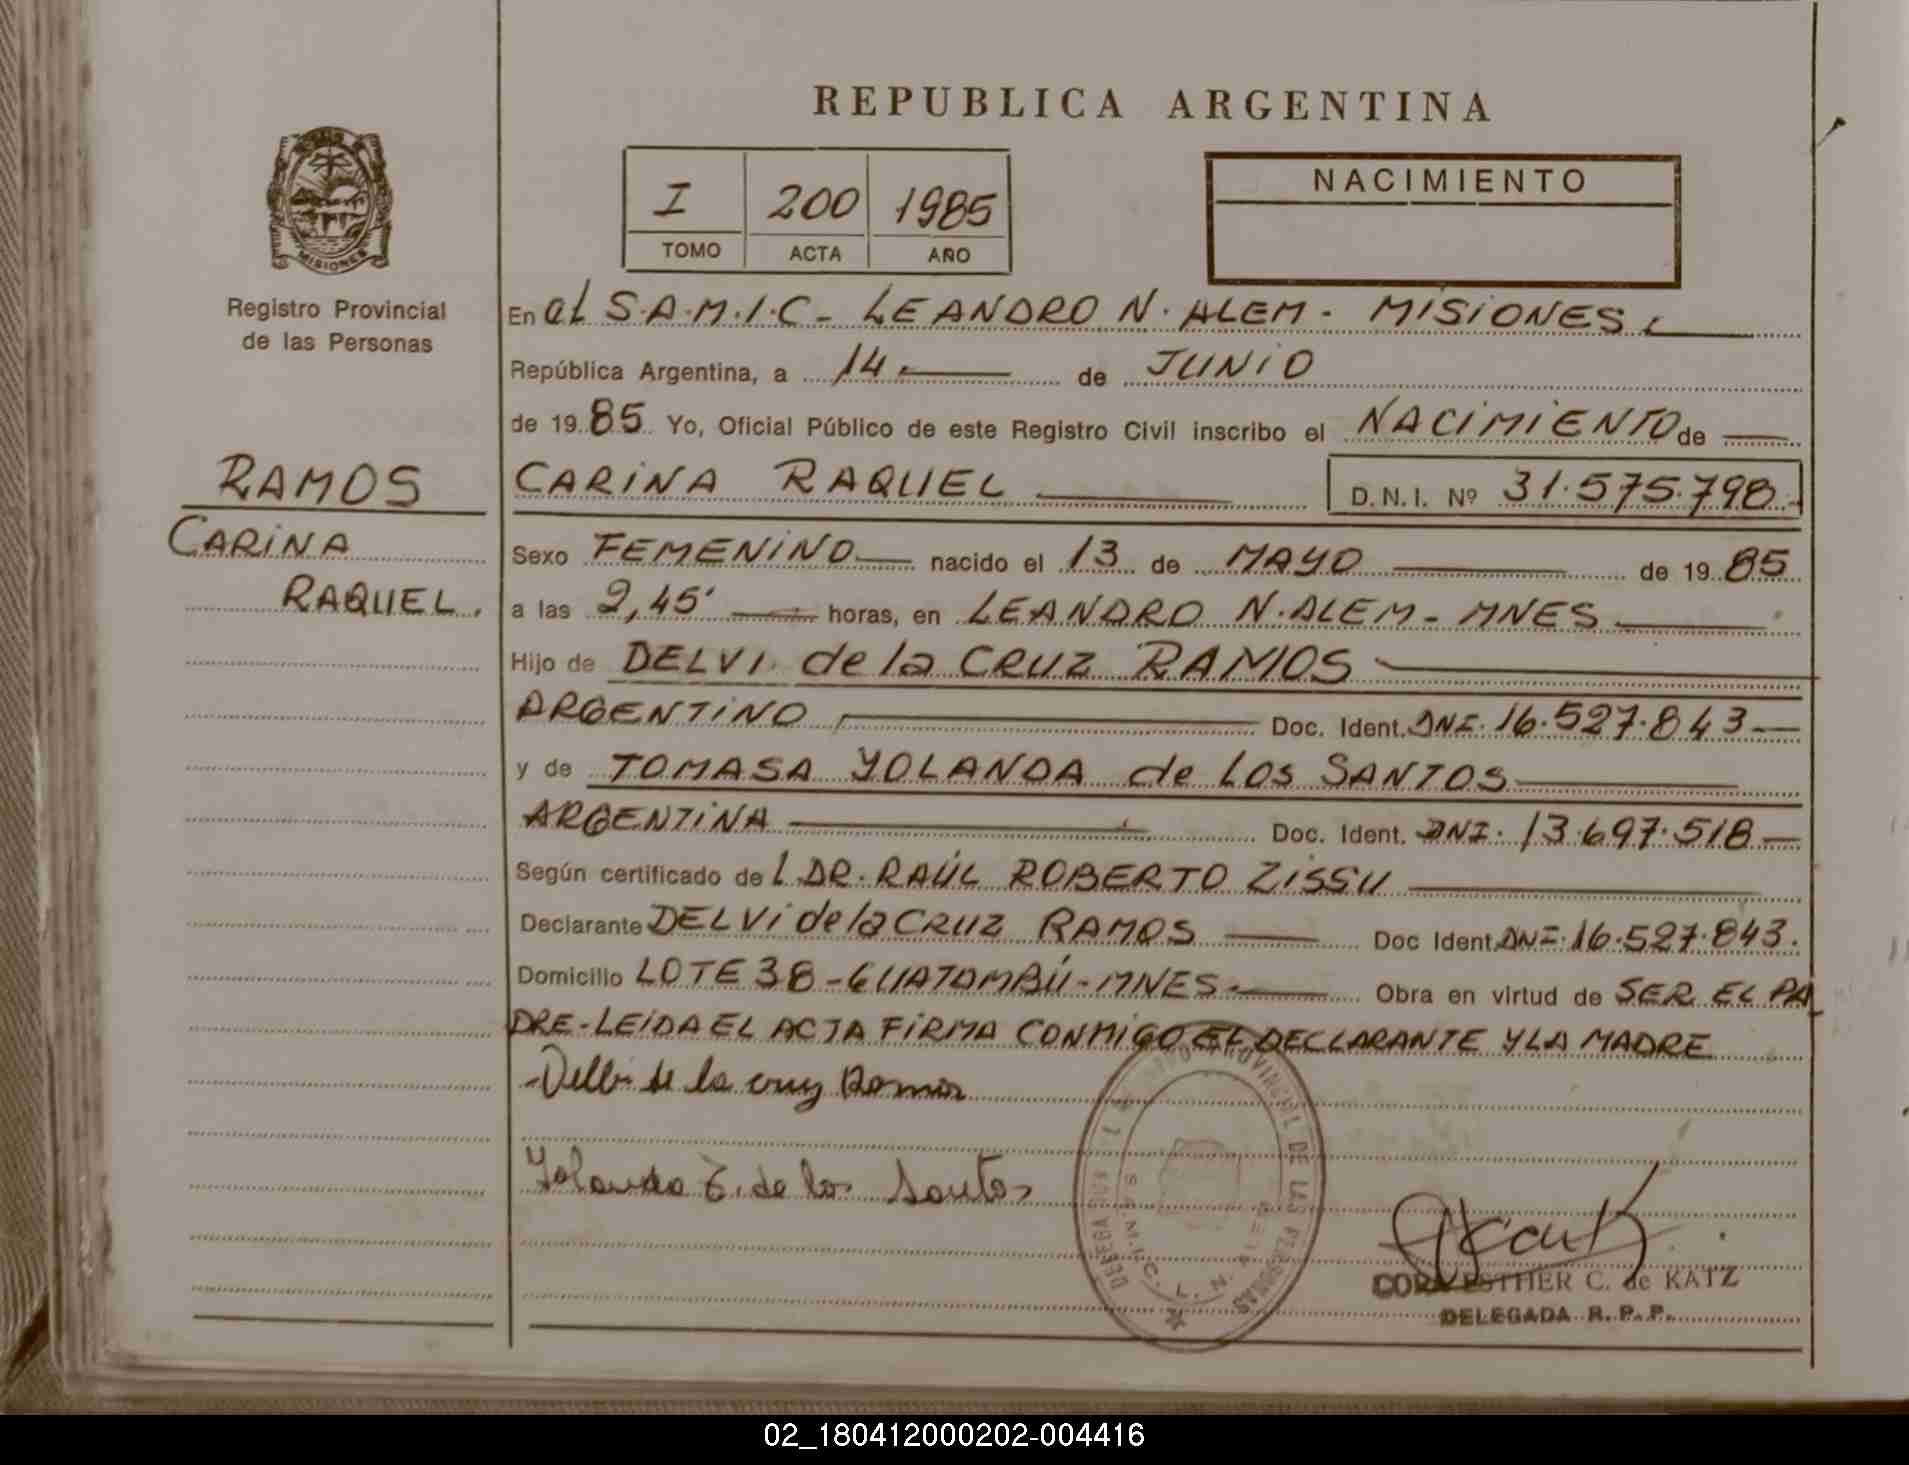 REPUBLICA ARGENTINA
I 200 1985
TOMO ACTA AÑO
NACIMIENTO
MISIONES
Registro Provincial
de las Personas
RAMOS
CARINA
RAQUEL.
En el S.A.M.I.C - LEANDRO N. ALEM - MISIONES
República Argentina, a 14 de JUNIO
de 1985 Yo, Oficial Público de este Registro Civil inscribo el NACIMIENTO de
CARINA RAQUEL D.N.I. Nº 31.575.798
Sexo FEMENINO nacido el 13 de MAYO de 1985
a las 2,45' horas, en LEANDRO N. ALEM - MNES
Hijo de DELVI de la CRUZ RAMOS
ARGENTINO Doc. Ident. DNI. 16.527.843
y de TOMASA YOLANDA de LOS SANTOS
ARGENTINA Doc. Ident. DNI. 13.697.518
Según certificado de L DR. RAÚL ROBERTO ZISSU
Declarante DELVI de la CRUZ RAMOS Doc Ident DNI. 16.527.843.
Domicilio LOTE 38 - GUATAMBÚ - MNES. Obra en virtud de SER EL PA
DRE - LEIDA EL ACTA FIRMA CONMIGO EL DECLARANTE Y LA MADRE
Delbi de la cruz Ramos
Yolanda T. de los Santos
PROVINCIAL DE LAS PERSONAS
S.A.M.I.C. L. N.
CORA ESTHER C. de KATZ
DELEGADA R. P. P.
02_180412000202-004416